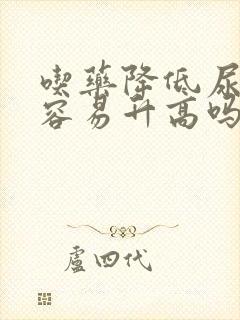 喫藥降低尿
容易升高吗
盧四代